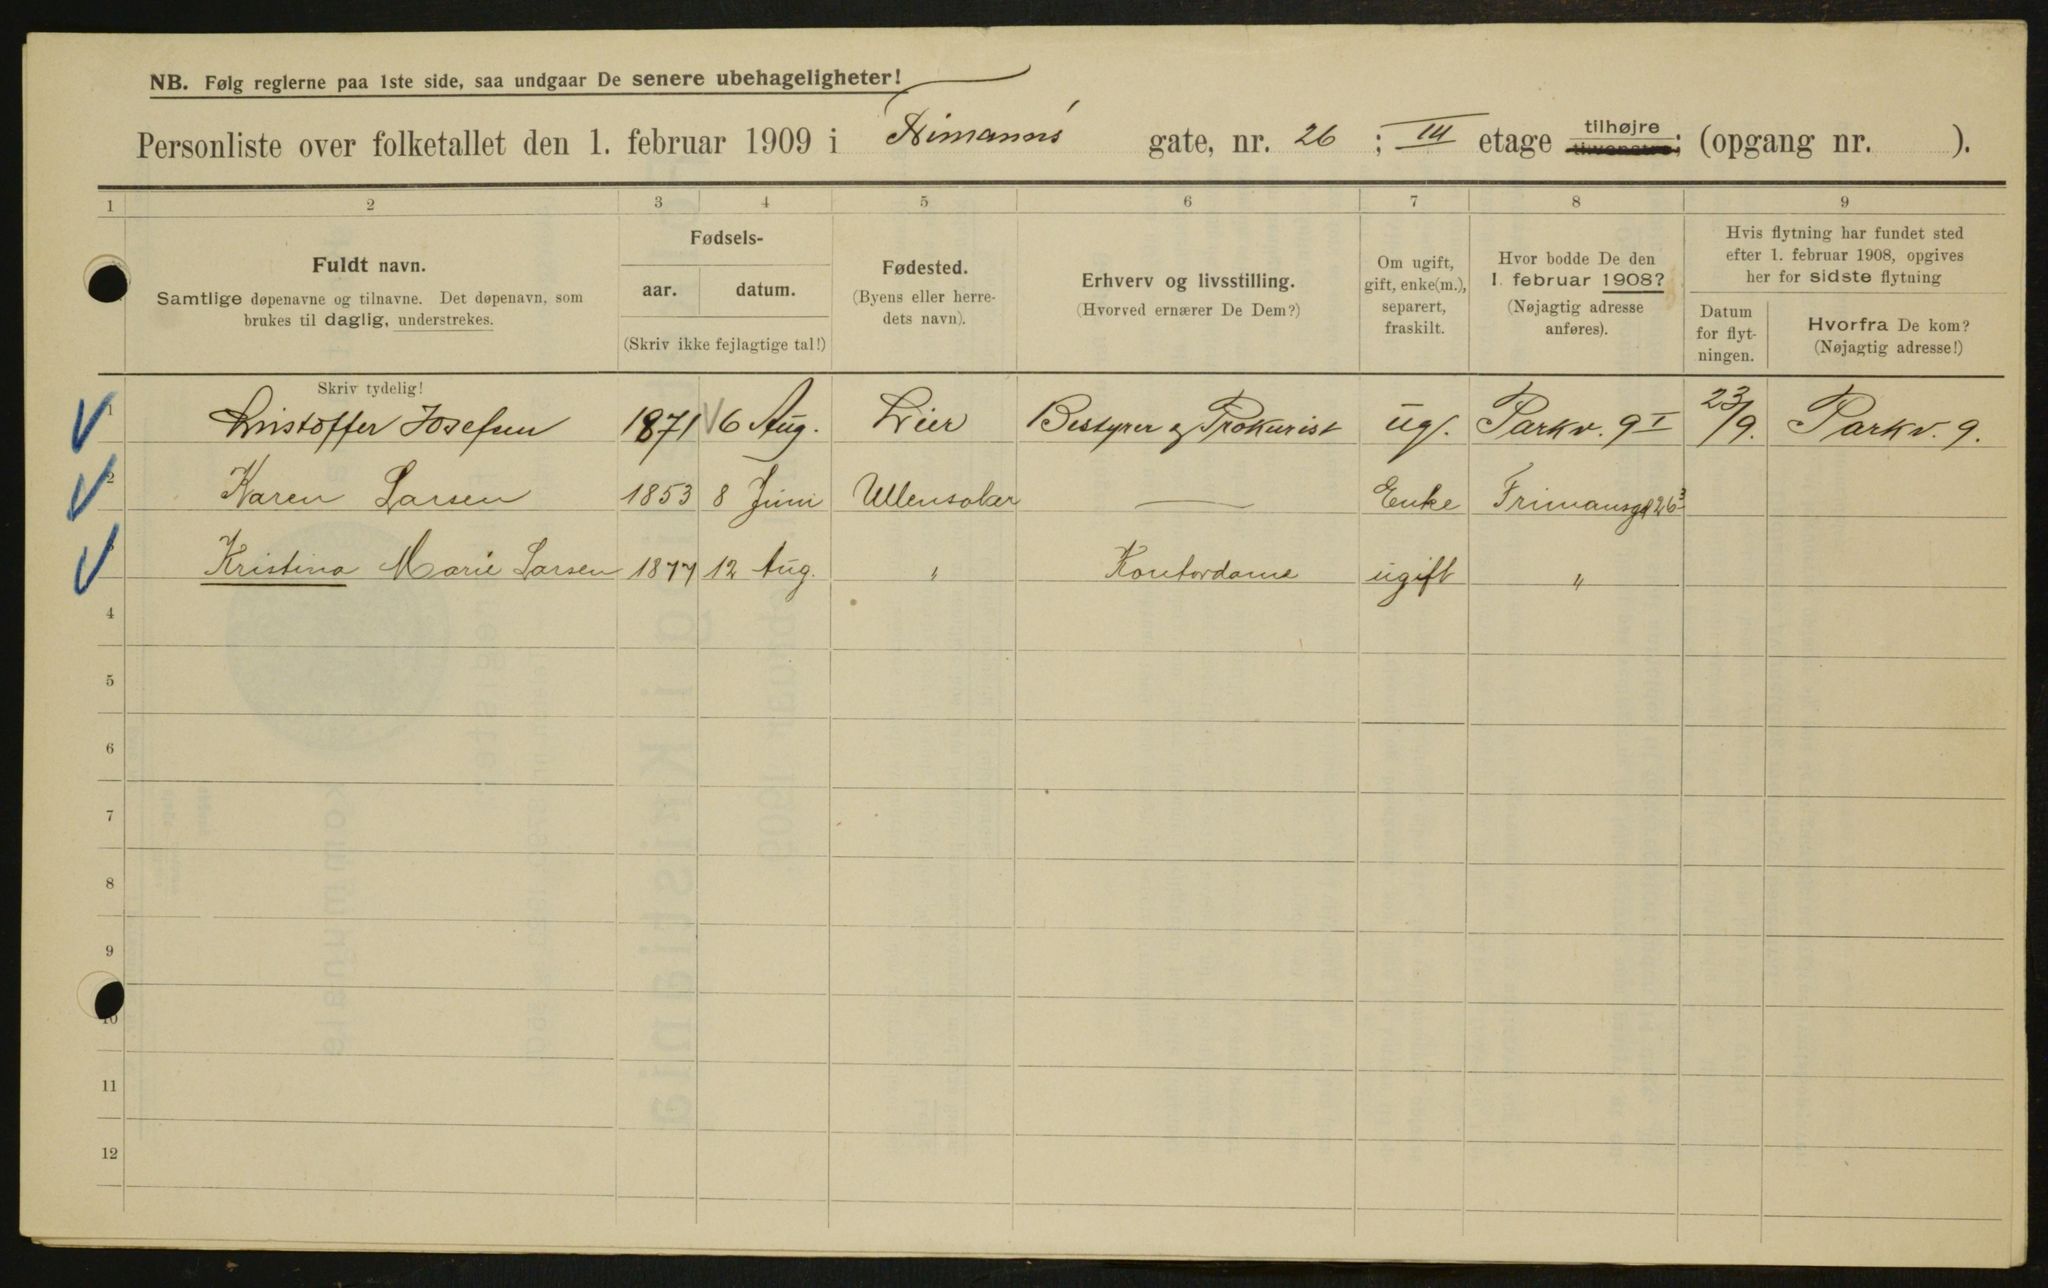 NB. Følg reglerne paa 1ste side, saa undgaar De senere ubehageligheter!
Personliste over folketallet den 1. februar 1909 i Frimanns gate, nr. 26 ; III etage tilhøjre tilvenstre; (opgang nr. ).
1 2 3 4 5 6 7 8 9
Fuldt navn.
Samtlige døpenavne og tilnavne. Det døpenavn, som
brukes til daglig, understrekes.
Fødsels-
aar. datum.
(Skriv ikke fejlagtige tal!)
Fødested.
(Byens eller herre-
dets navn).
Erhverv og livsstilling.
(Hvorved ernærer De Dem?)
Om ugift,
gift, enke(m.),
separert,
fraskilt.
Hvor bodde De den
1. februar 1908?
(Nøjagtig adresse
anføres).
Hvis flytning har fundet sted
efter 1. februar 1908, opgives
her for sidste flytning
Datum
for flyt-
ningen.
Hvorfra De kom?
(Nøjagtig adresse!)
Skriv tydelig!
1 Kristoffer Josefsen 1871 6 Aug. Lier Bestyrer og Prokurist ug. Parkv. 9 I 23/9. Parkv. 9.
2 Karen Larsen 1853 8 Juni Ullensaker — Enke Frimansgd 26 3
3 Kristina Marie Larsen 1877 12 Aug. " Kontordame ugift "
4
5
6
7
8
9
10
11
12